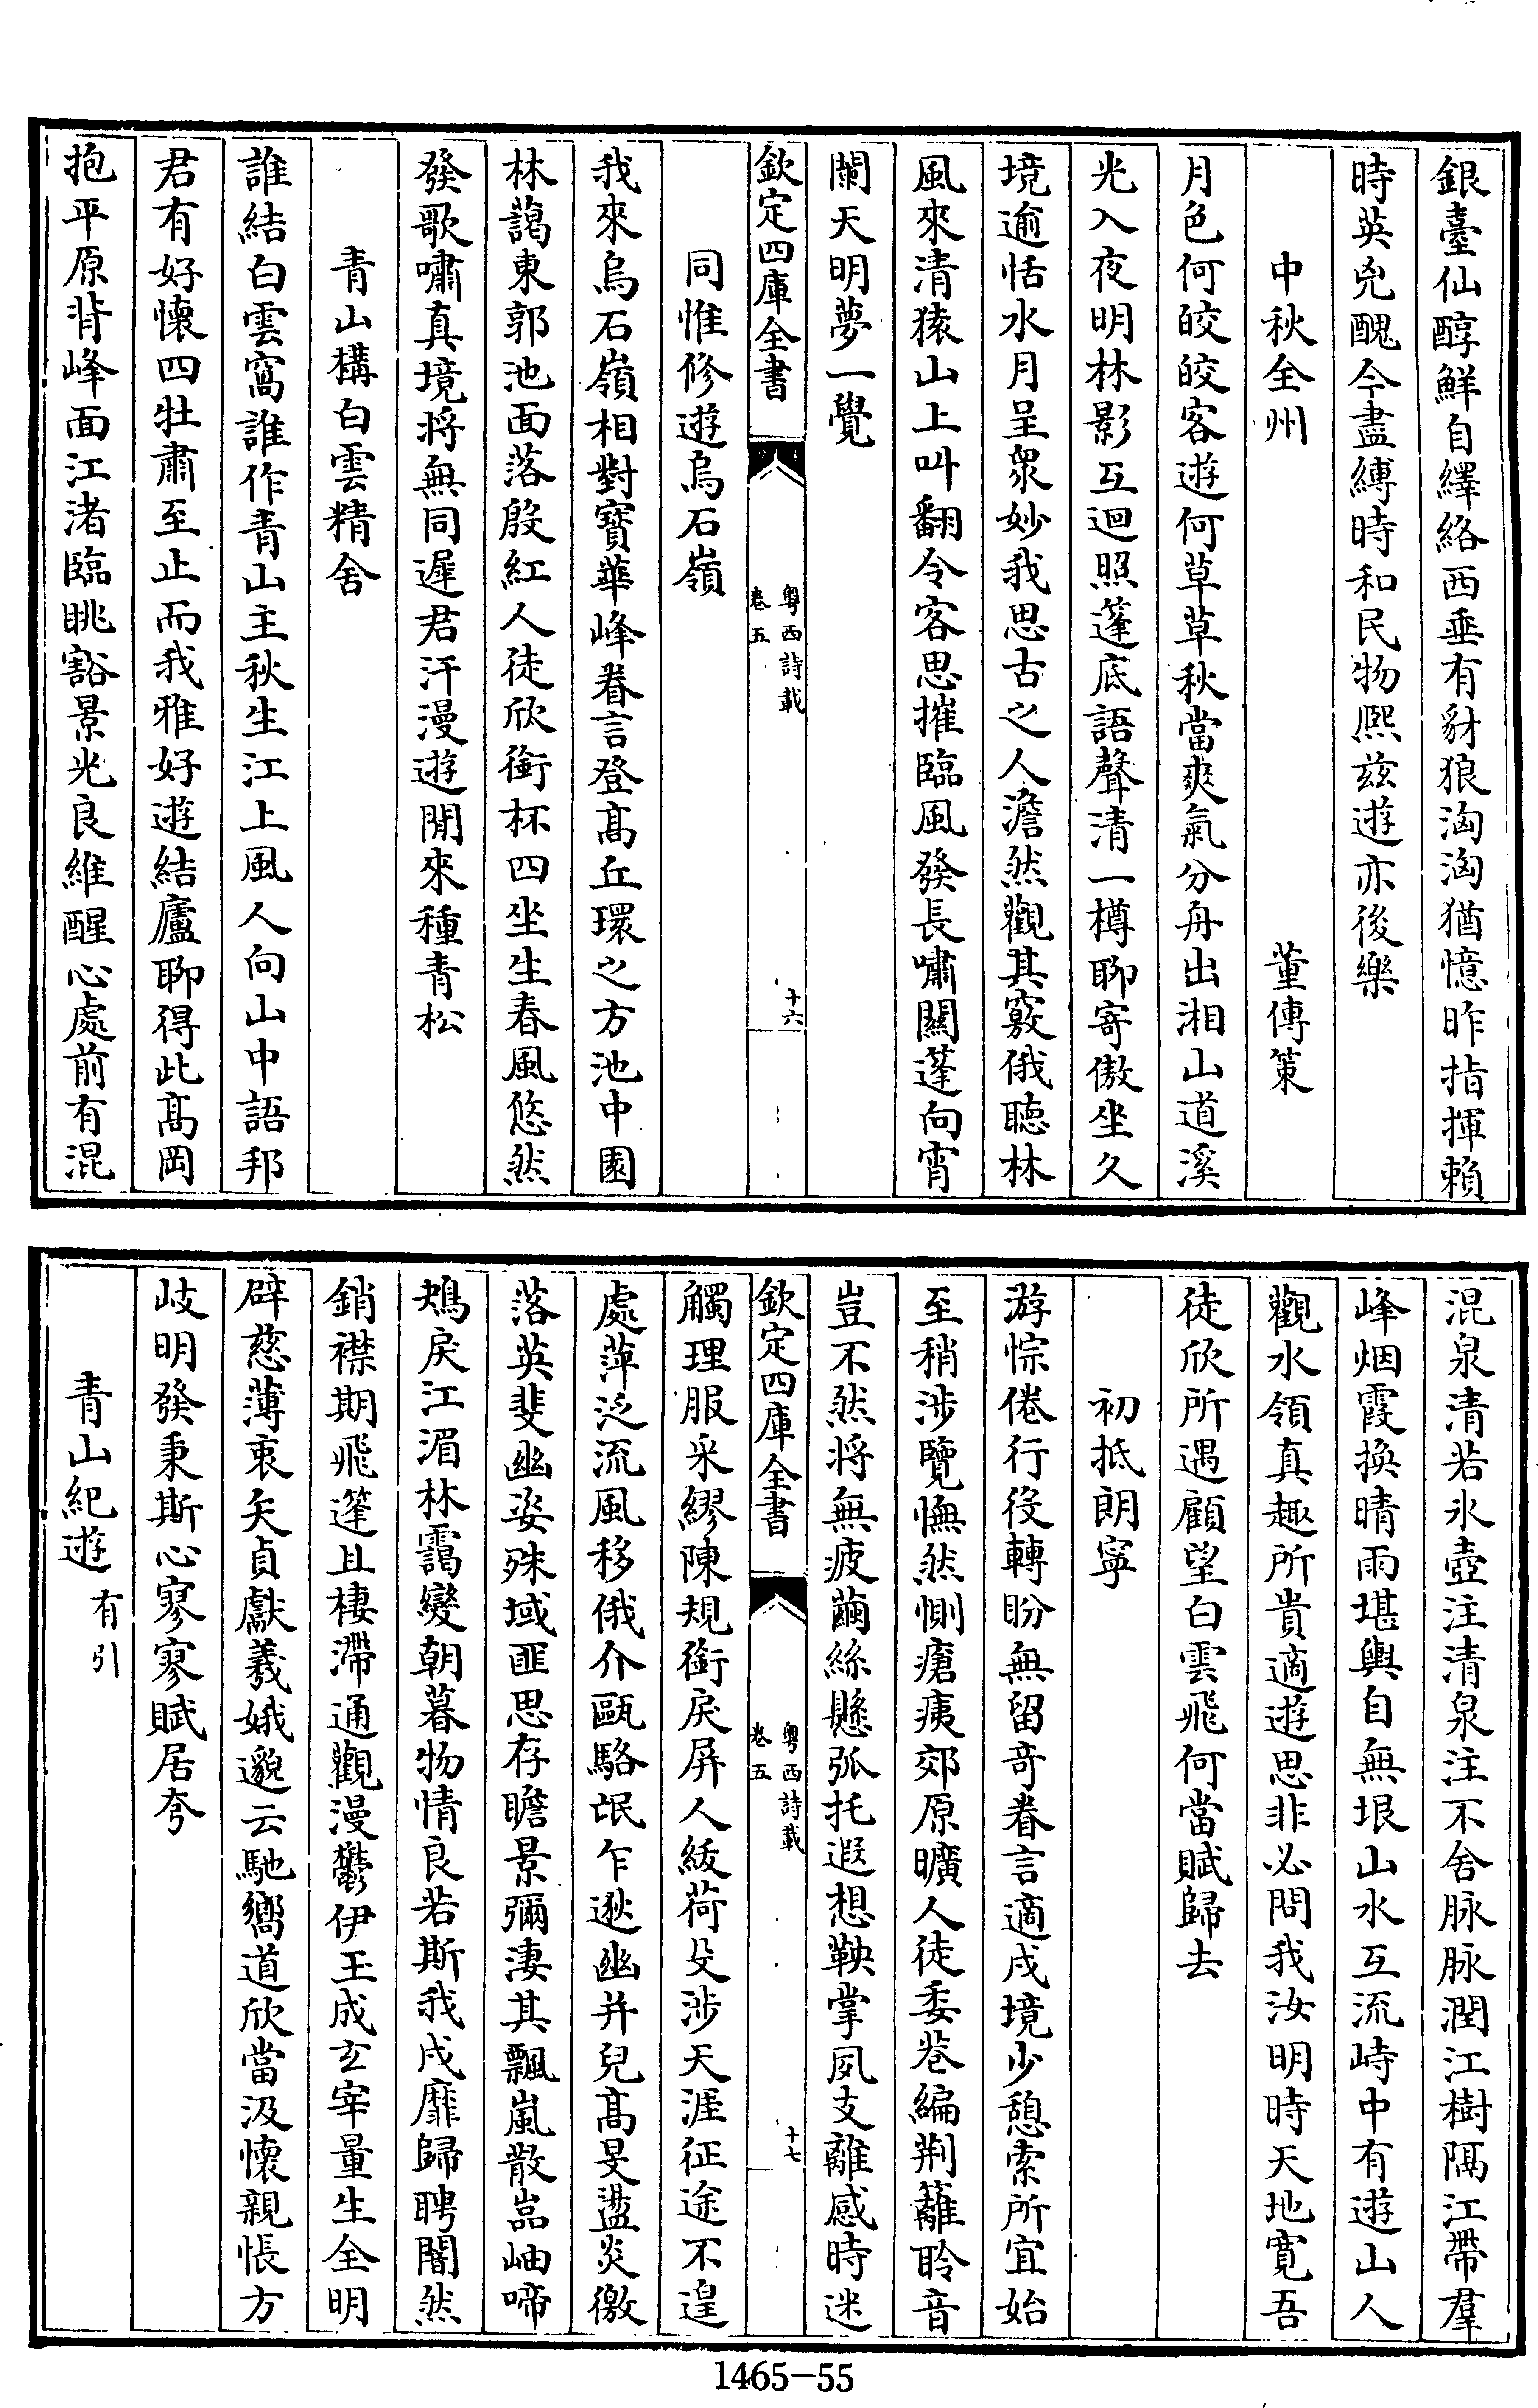 銀臺仙醇鮮自繹絡西垂有豺狼洶洶猶憶昨指揮賴
時英兇醜今盡縛時和民物熙兹遊亦後樂
中秋全州 董傳策
月色何皎皎客遊何草草秋當爽氣分舟出湘山道溪
光入夜明林影互迴照篷底語聲清一樽聊寄傲坐久
境逾恬水月呈衆妙我思古之人澹然觀其竅俄聽林
風來清猿山上叫翻令客思摧臨風發長嘯關蓬向宵
闌天明夢一覺
欽定四庫全書 粤西詩載 卷五 十六
同惟修遊烏石嶺
我來烏石嶺相對寶華峰眷言登髙丘環之方池中園
林藹東郭池面落殷紅人徒欣銜杯四坐生春風悠然
發歌嘯真境將無同遲君汗漫遊閒來種青松
青山構白雲精舍
誰結白雲窩誰作青山主秋生江上風人向山中語邦
君有好懷四牡肅至止而我雅好遊結廬聊得此髙岡
抱平原背峰面江渚臨眺豁景光良維醒心處前有混
混泉清若氷壺注清泉注不舍脉脉潤江樹隅江帶羣
峰烟霞換晴雨堪輿自無垠山水互流峙中有遊山人
觀水領真趣所貴適遊思非必問我汝明時天地寛吾
徒欣所遇顧望白雲飛何當賦歸去
初抵朗寧
游悰倦行役轉盼無留奇眷言適戍境少憩索所宜始
至稍涉覽憮然惻瘡痍郊原曠人徒委巷編荆籬聆音
豈不然將無疲繭絲懸弧托遐想鞅掌夙支離感時迷
欽定四庫全書 粤西詩載 卷五 十七
觸理服采繆陳規銜戾屏人紱荷殳涉天涯征途不遑
處萍泛流風移俄介甌駱氓乍逖幽并兒髙旻盪炎徼
落英斐幽姿殊域匪思存瞻景彌淒其飄嵐散嵓岫啼
鴂戾江湄林靄變朝暮物情良若斯我戍靡歸聘闇然
銷襟期飛篷且棲滯通觀漫鬱伊玉成玄宰量生全明
辟慈薄衷矢貞獻羲娥邈云馳嚮道欣當汲懷親悵方
岐明發秉斯心寥寥賦居夸
青山紀遊 有引
1465-55